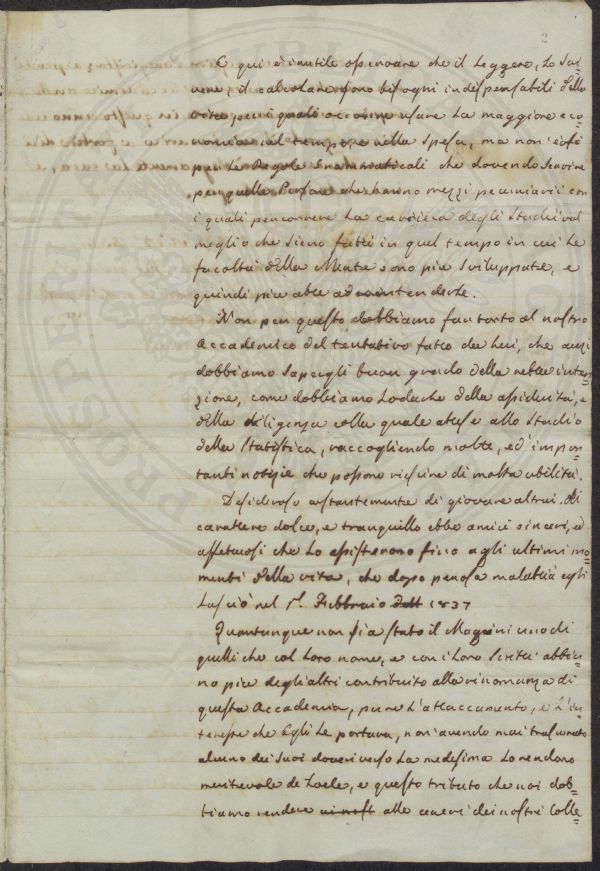 2
E qui è inutile osservare che il Leggere, Lo Scri=
vere, il calcolare sono bisogni indispensabili della
vita pei quali occorre usare La maggiore eco=
nomia sul tempo e nella Spesa, ma non è così
per Le Regole Grammaticali che dovendo Servire
per quelle Persone che hanno mezzi pecuniarii con
i quali percorrere La carriera degli Studi val
meglio che sieno fatti in quel tempo in cui Le
facoltà della Mente sono più Sviluppate, e
quindi più atte ad intenderle.
Non per questo dobbiamo far torto al nostro
Accademico del tentativo fatto da Lui, che anzi
dobbiamo Sapergli buon grado della retta inten=
zione, come dobbiamo Lodarlo della assiduità, e
della diligenza colla quale attese allo Studio
della Statistica, raccogliendo molte, ed impor=
tanti notizie che possono riescire di molta utilità.
Desideroso costantemente di giovare altrui. Di
carattere dolce, e tranquillo ebbe amici sinceri, ed
affettuosi che Lo assisterono fino agli ultimi mo=
menti della vita, che dopo penosa malattia egli
Lasciò nel 5 Febbraio 1837
Quantunque non sia stato il Magrini uno di
quelli che col Loro nome, e con i Loro Scritti abbia=
no più degli altri contribuito alla rinomanza di
questa Accademia, pure L'attaccamento, e L'in=
teresse che Egli Le portava, non avendo mai trascurato
alcuno dei Suoi doveri verso La medesima Lo rendono
meritevole di Lode, e questo tributo che noi dob=
biamo rendere alle ceneri dei nostri Colle=